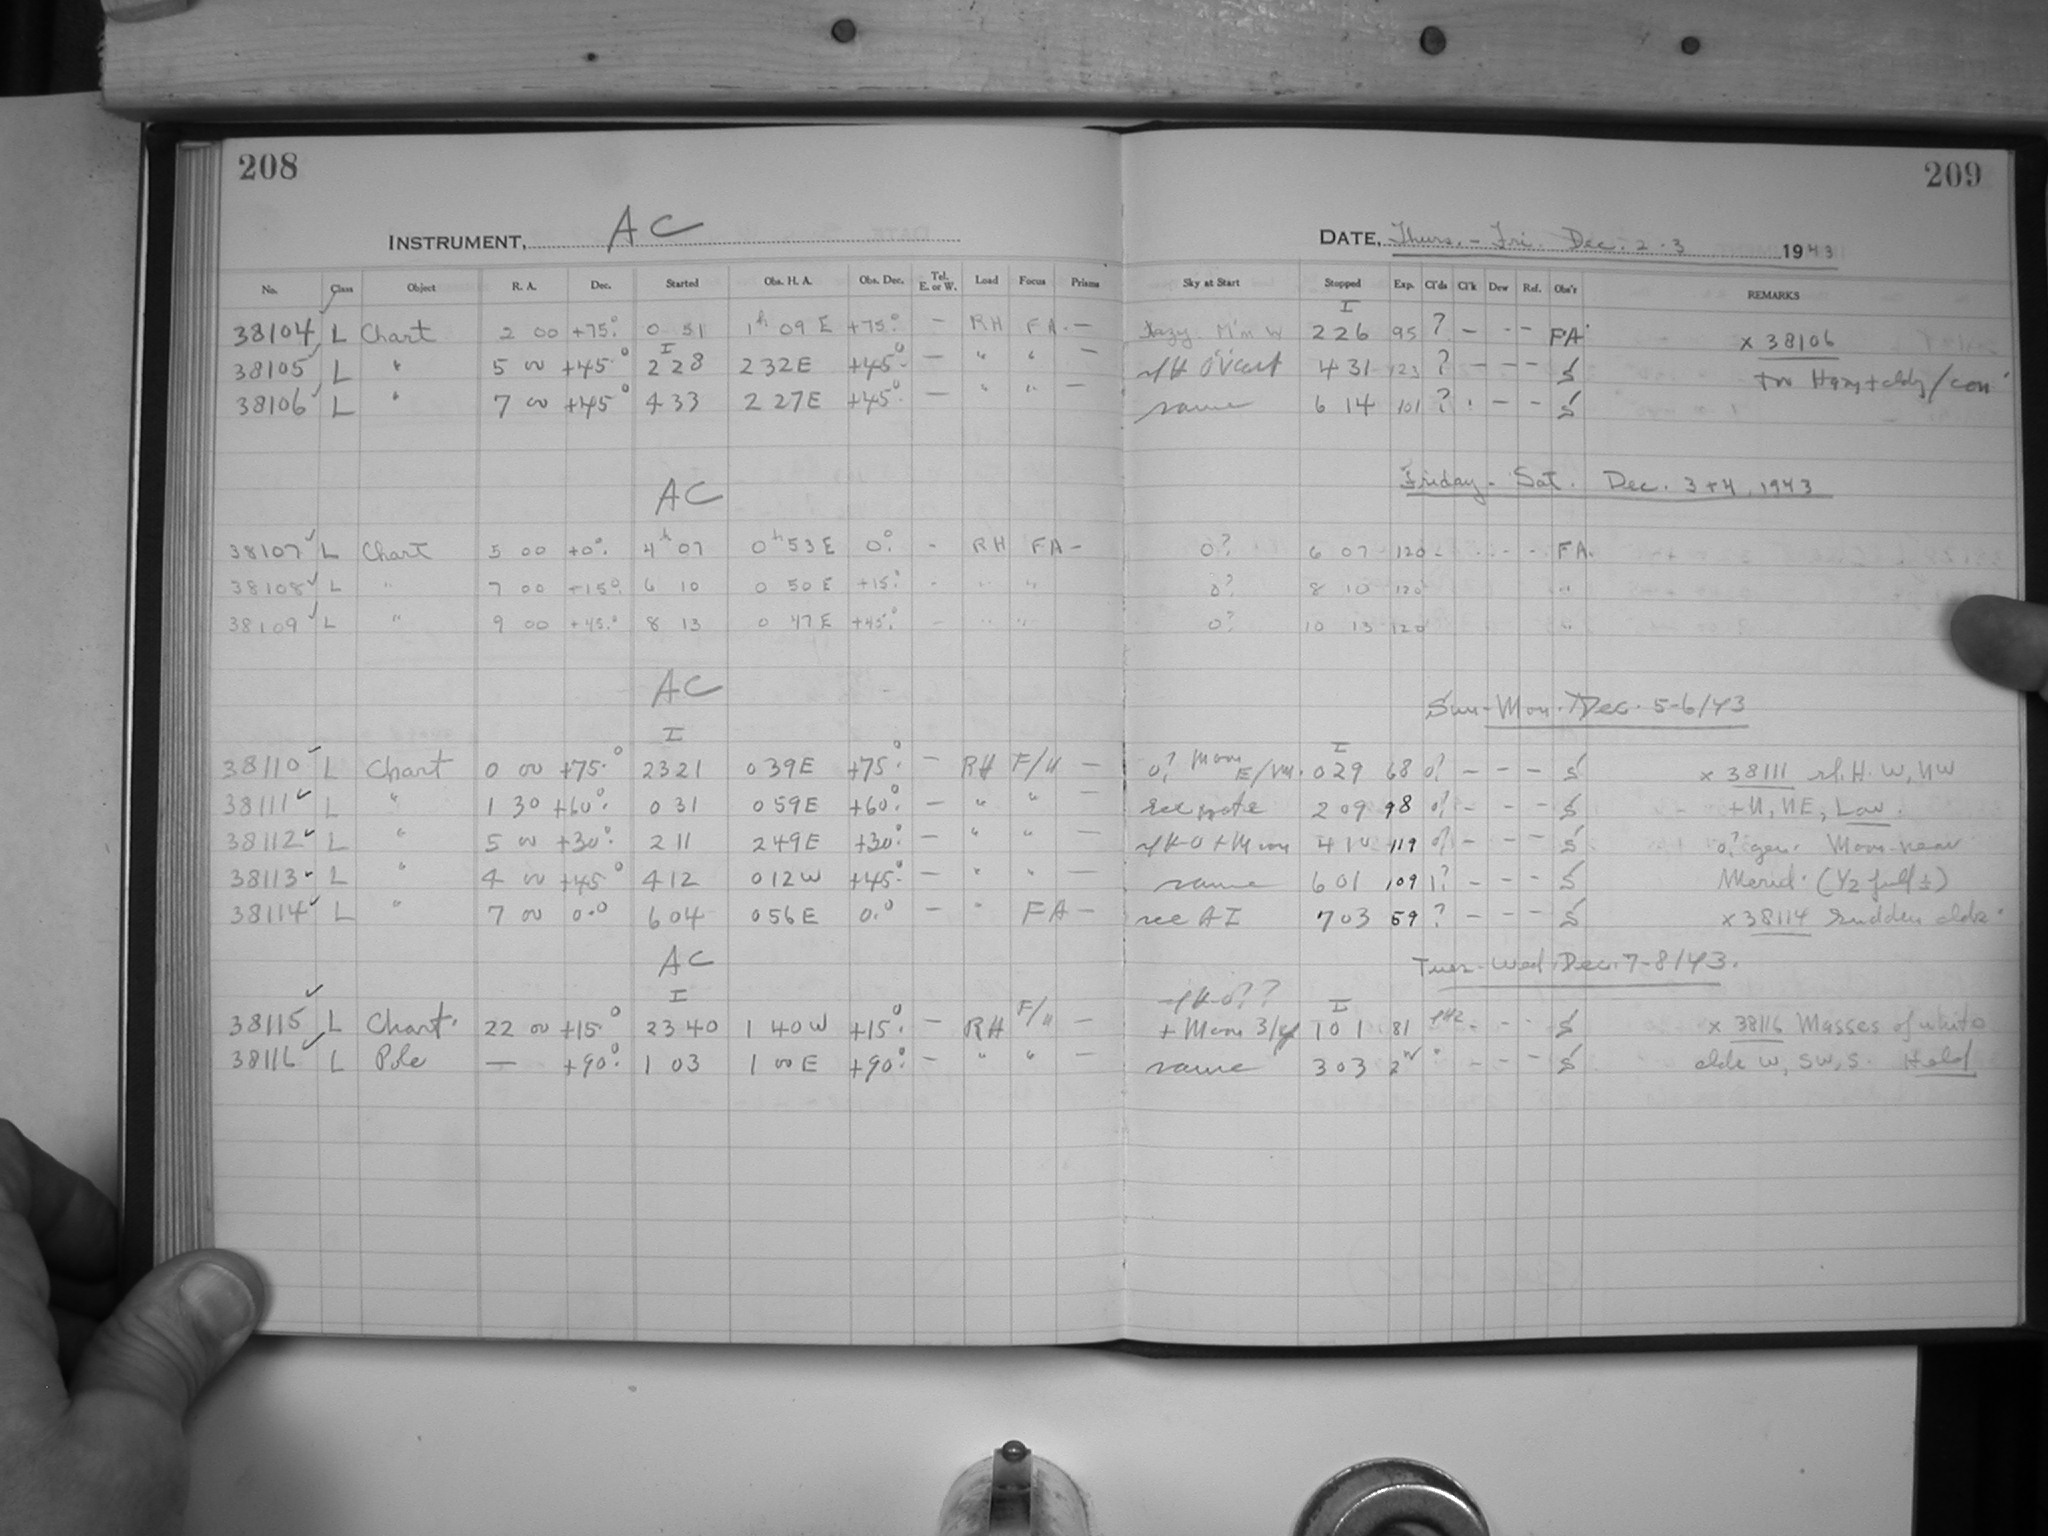 208
209
INSTRUMENT, AC
DATE, Thurs. - Fri. Dec. 2-3 1943
No. Class Object R. A. Dec. Started Obs. H. A. Obs. Dec. Tel. E. or W. Load Focus Prisms Sky at Start Stopped Exp. Cl'ds Cl'k Dew Ref. Obs'r REMARKS
I
38104 L Chart 2 00 +75° 0 51 1h 09 E +75° - RH FA - Hazy M'n W 2 26 95 ? - - - FA x 38106
I
38105 L " 5 00 +45° 2 28 2 32 E +45° - " " - 4 31 123 ? - - - S
38106 L " 7 00 +45° 4 33 2 27 E +45° - " " - same 6 14 101 ? - - S
AC Friday - Sat. Dec. 3+4, 1943
38107 L Chart 5 00 +0° 4h 07 0h 53 E 0° - RH FA - 0? 6 07 120 - - - - FA.
38108 L " 7 00 +15° 6 10 0 50 E +15° - " " 0? 8 10 120 "
38109 L " 9 00 +45° 8 13 0 47 E +45° - " " 0? 10 13 120 "
AC Sun-Mon. Dec. 5-6/43
I I
38110 L Chart 0 00 +75° 23 21 0 39 E +75° - RH F/11 - 0? Moon 0 29 68 0? - - - S x 38111 W, NW
38111 L " 1 30 +60° 0 31 0 59 E +60° - " " - see note 2 09 98 0? - - - S + N, NE, Low.
38112 L " 5 00 +30° 2 11 2 49 E +30° - " " - 4 10 119 0? - - - S 0? gen. Moon near
38113 L " 4 00 +45° 4 12 0 12 W +45° - " " - same 6 01 109 1? - - - S Merid. (1/2 full ±)
38114 L " 7 00 0.0 6 04 0 56 E 0.0 - " FA - see AI 7 03 59 ? - - - S x 38114 Sudden clds.
AC Tues-Wed Dec. 7-8/43.
I I
38115 L Chart 22 00 +15° 23 40 1 40 W +15° - RH F/11 - + Moon 3/4 1 01 81 - - S x 38116 Masses of white
38116 L Pole - +90° 1 03 1 00 E +90° - " " - same 3 03 2h - - - S clds W, SW, S. Held